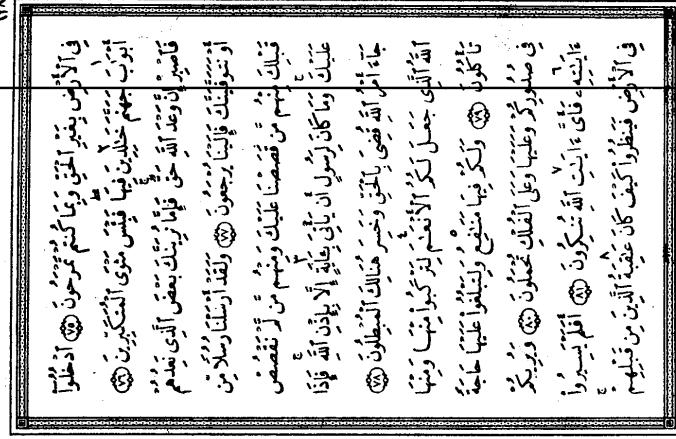 فِى ٱلْأَرْضِ بِغَيْرِ ٱلْحَقِّ وَبِمَا كُنتُمْ تَمْرَحُونَ ٧٥ ٱدْخُلُوٓا۟
أَبْوَٰبَ جَهَنَّمَ خَٰلِدِينَ فِيهَا فَبِئْسَ مَثْوَى ٱلْمُتَكَبِّرِينَ ٧٦
فَٱصْبِرْ إِنَّ وَعْدَ ٱللَّهِ حَقٌّ فَإِمَّا نُرِيَنَّكَ بَعْضَ ٱلَّذِى نَعِدُهُمْ
أَوْ نَتَوَفَّيَنَّكَ فَإِلَيْنَا يُرْجَعُونَ ٧٧ وَلَقَدْ أَرْسَلْنَا رُسُلًا مِّن
قَبْلِكَ مِنْهُم مَّن قَصَصْنَا عَلَيْكَ وَمِنْهُم مَّن لَّمْ نَقْصُصْ
عَلَيْكَ وَمَا كَانَ لِرَسُولٍ أَن يَأْتِىَ بِـَٔايَةٍ إِلَّا بِإِذْنِ ٱللَّهِ فَإِذَا
جَآءَ أَمْرُ ٱللَّهِ قُضِىَ بِٱلْحَقِّ وَخَسِرَ هُنَالِكَ ٱلْمُبْطِلُونَ ٧٨
ٱللَّهُ ٱلَّذِى جَعَلَ لَكُمُ ٱلْأَنْعَٰمَ لِتَرْكَبُوا۟ مِنْهَا وَمِنْهَا
تَأْكُلُونَ ٧٩ وَلَكُمْ فِيهَا مَنَٰفِعُ وَلِتَبْلُغُوا۟ عَلَيْهَا حَاجَةً
فِى صُدُورِكُمْ وَعَلَيْهَا وَعَلَى ٱلْفُلْكِ تُحْمَلُونَ ٨٠ وَيُرِيكُمْ
ءَايَٰتِهِۦ فَأَىَّ ءَايَٰتِ ٱللَّهِ تُنكِرُونَ ٨١ أَفَلَمْ يَسِيرُوا۟
فِى ٱلْأَرْضِ فَيَنظُرُوا۟ كَيْفَ كَانَ عَٰقِبَةُ ٱلَّذِينَ مِن قَبْلِهِمْ